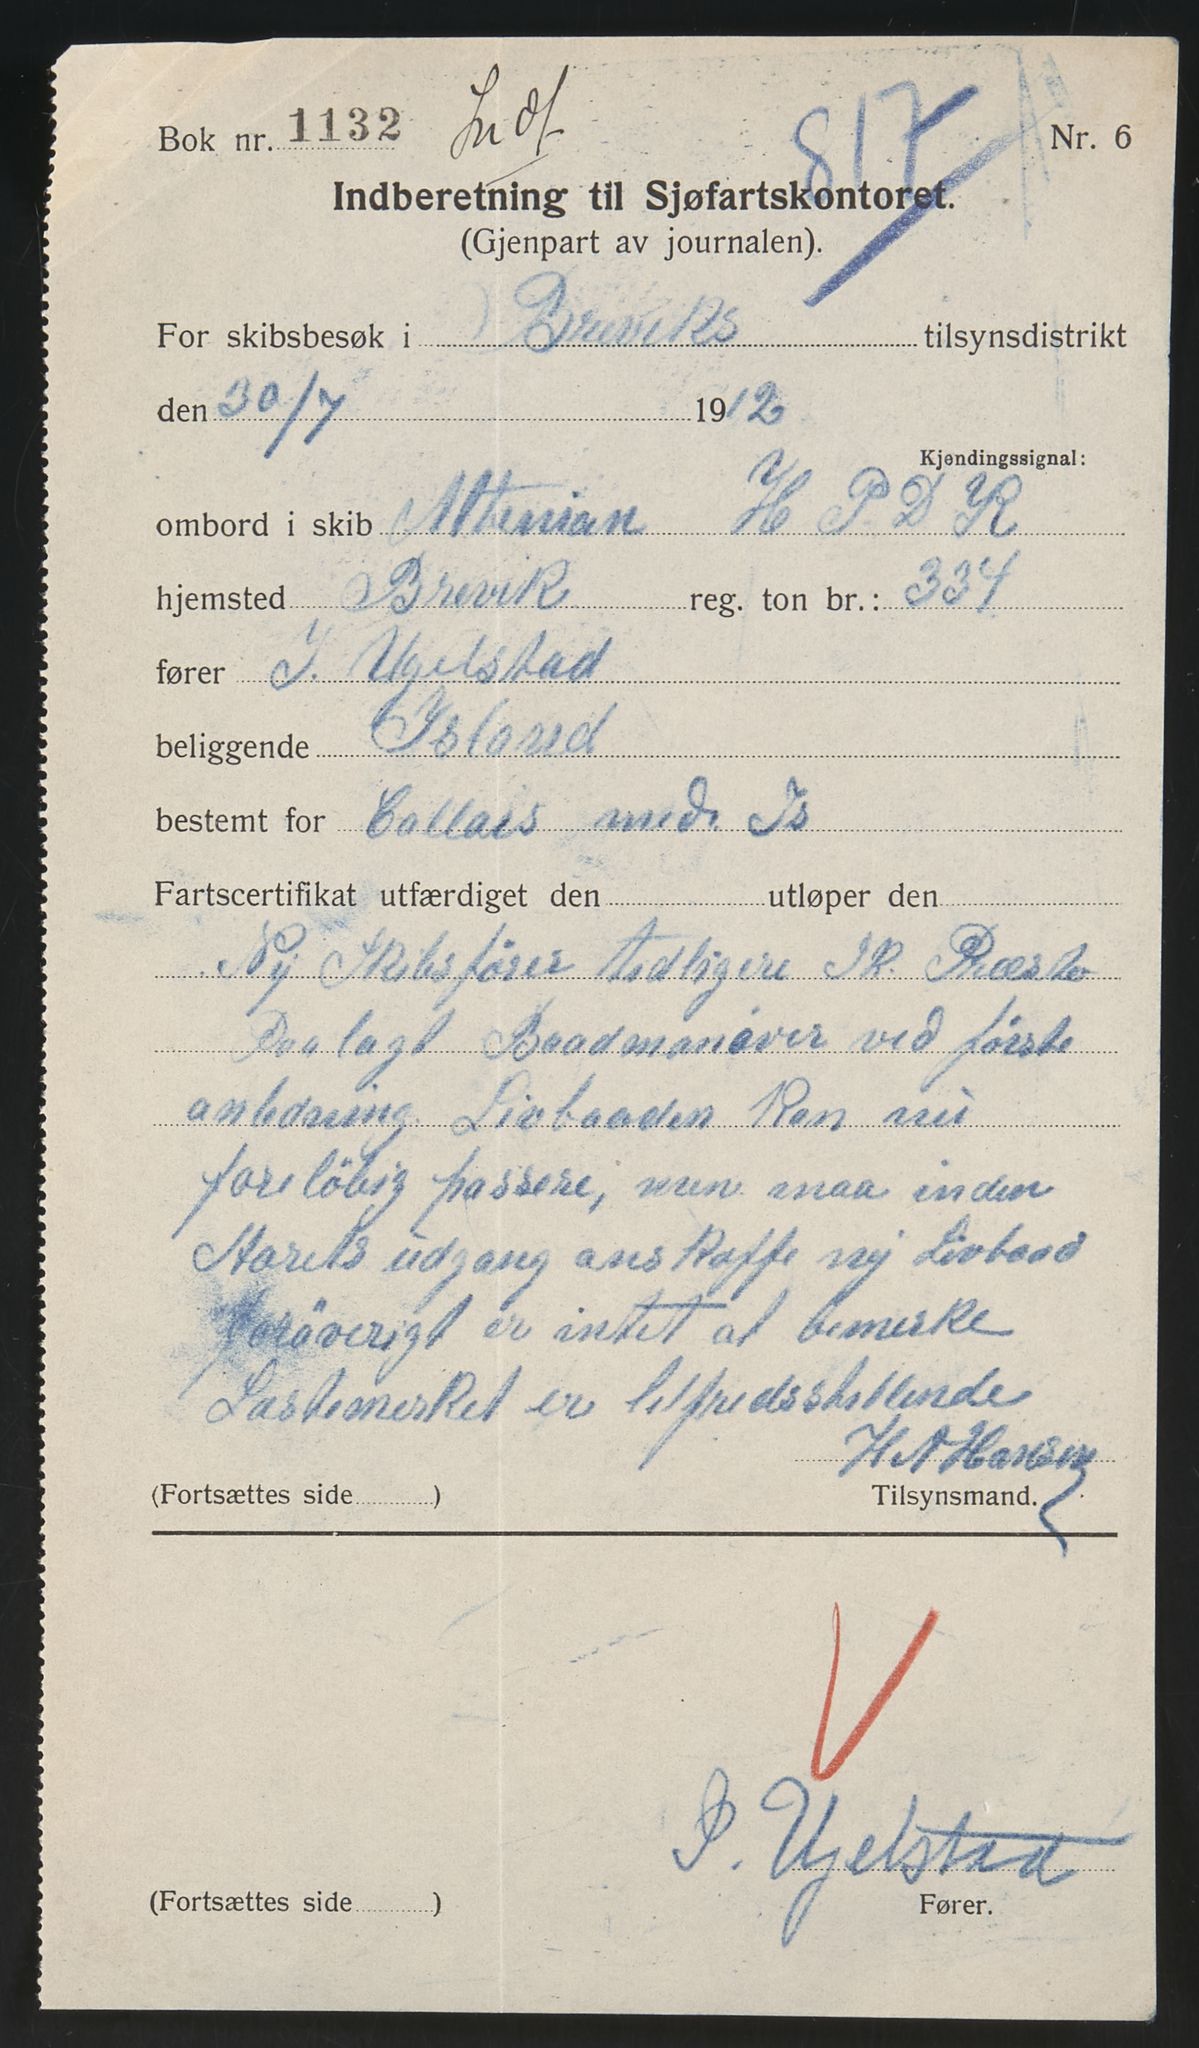 Bok nr. 1132 Indf 817 Nr. 6
Indberetning til Sjøfartskontoret.
(Gjenpart av journalen).
For skibsbesøk i Breviks tilsynsdistrikt
den 30/7 1912
Kjendingssignal:
ombord i skib H P D R
hjemsted Brevik reg. ton br.: 334
fører I. Ugelstad
beliggende Island
bestemt for Callais med Is
Fartscertifikat utfærdiget den utløper den
Ny Skibsfører tidligere
Paalagt Baadmanöver ved förste
anledning. Livbaaden kan nu
forelöbig passere, men maa inden
Aarets udgang anskaffe ny Livbaad
foröverigt er intet at bemerke
Lastemerket er tilfredsstillende
H A Hansen
(Fortsættes side ) Tilsynsmand.
P. Ugelstad
(Fortsættes side ) Fører.